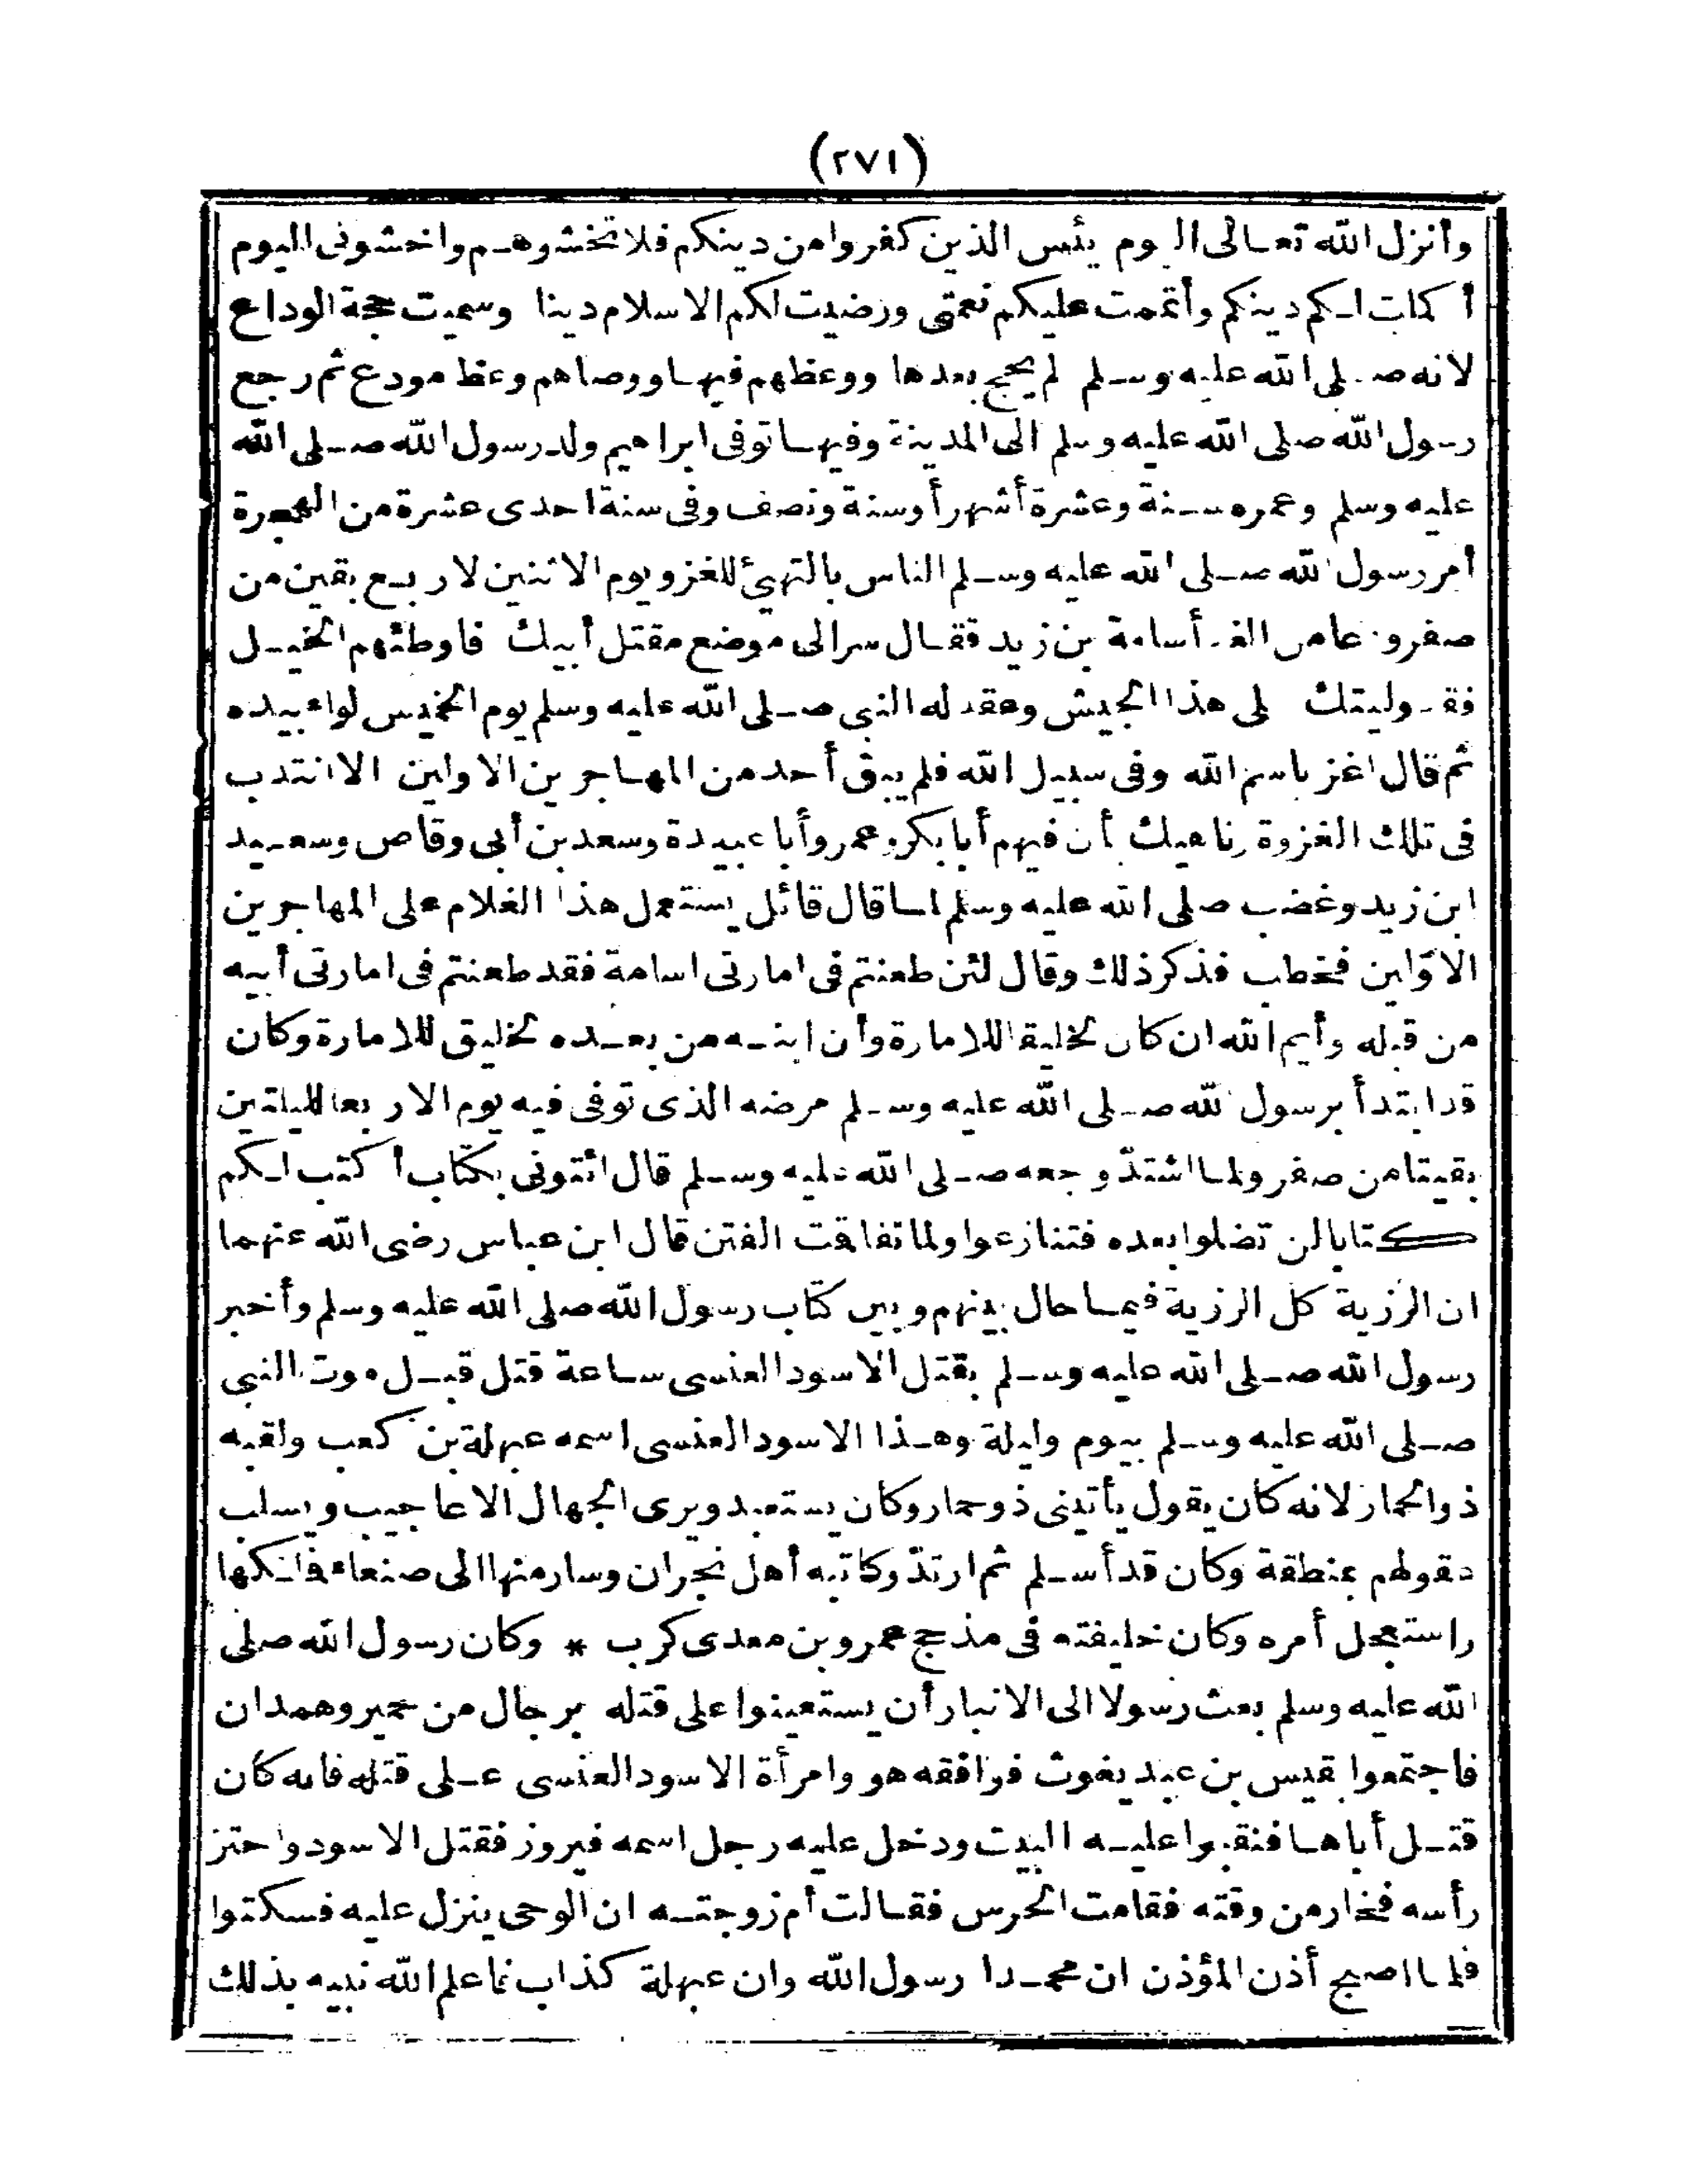 (٢٧١)
وأنزل الله تعالى اليوم يئس الذين كفروا من دينكم فلا تخشوهم واخشونى اليوم
أكملت لكم دينكم وأتممت عليكم نعمتى ورضيت لكم الاسلام دينا وسميت حجة الوداع
لانه صلى الله عليه وسلم لم يحج بعدها ووعظهم فيها ووصاهم وعظ مودع ثم رجع
رسول الله صلى الله عليه وسلم الى المدينة وفيها توفى ابراهيم ولد رسول الله صلى الله
عليه وسلم وعمره سنة وعشرة أشهر أو سنة ونصف وفى سنة احدى عشرة من الهجرة
أمر رسول الله صلى الله عليه وسلم الناس بالتهيئ للغزو يوم الاثنين لاربع بقين من
صفر أسامة بن زيد فقال سر الى موضع مقتل أبيك فاوطئهم الخيل
وليتك هذا الجيش وعقد له النبى صلى الله عليه وسلم يوم الخميس لواء بيده
ثم قال اغز باسم الله وفى سبيل الله فلم يبق أحد من المهاجرين الاولين الا انتدب
فى تلك الغزوة وناهيك أن فيهم أبا بكر وعمر وأبا عبيدة وسعد بن أبى وقاص وسعيد
ابن زيد وغضب صلى الله عليه وسلم لما قال قائل يستعمل هذا الغلام على المهاجرين
الاوّلين فخطب فذكر ذلك وقال لئن طعنتم فى امارتى اسامة فقد طعنتم فى امارتى أبيه
من قبله وأيم الله ان كان لخليقا للامارة وأن ابنه من بعده لخليق للامارة وكان
قد ابتدأ برسول الله صلى الله عليه وسلم مرضه الذى توفى فيه يوم الاربعا لليلتين
بقيتا من صفر ولما اشتدّ وجعه صلى الله عليه وسلم قال ائتونى بكتاب أكتب لكم
كتابا لن تضلوا بعده فتنازعوا ولما تفاقمت الفتن قال ابن عباس رضى الله عنهما
ان الرزية كل الرزية فيما حال بينهم وبين كتاب رسول الله صلى الله عليه وسلم وأخبر
رسول الله صلى الله عليه وسلم بقتل الاسود العنسى ساعة قتل قبل موت النبى
صلى الله عليه وسلم بيوم وليلة وهذا الاسود العنسى اسمه عبهلة بن كعب ولقبه
ذو الحمار لانه كان يقول يأتينى ذو حمار وكان يستعبد ويرى الجهال الاعاجيب ويسلب
عقولهم بمنطقة وكان قد أسلم ثم ارتدّ وكاتبه أهل نجران وسار منها الى صنعاء فلكها
واستعجل أمره وكان خليفته فى مذحج عمرو بن معدى كرب * وكان رسول الله صلى
الله عليه وسلم بعث رسولا الى الانبار أن يستعينوا على قتله برجال من حمير وهمدان
فاجتمعوا بقيس بن عبد يغوث فوافقه هو وامرأة الاسود العنسى على قتله فانه كان
قتل أباها فنقبوا عليه البيت ودخل عليه رجل اسمه فيروز فقتل الاسود واحتز
رأسه فخار من وقته فقامت الحرس فقالت أم زوجته ان الوحى ينزل عليه فسكتوا
فلما اصبح أذن المؤذن ان محمدا رسول الله وان عبهلة كذاب فاعلم الله نبيه بذلك